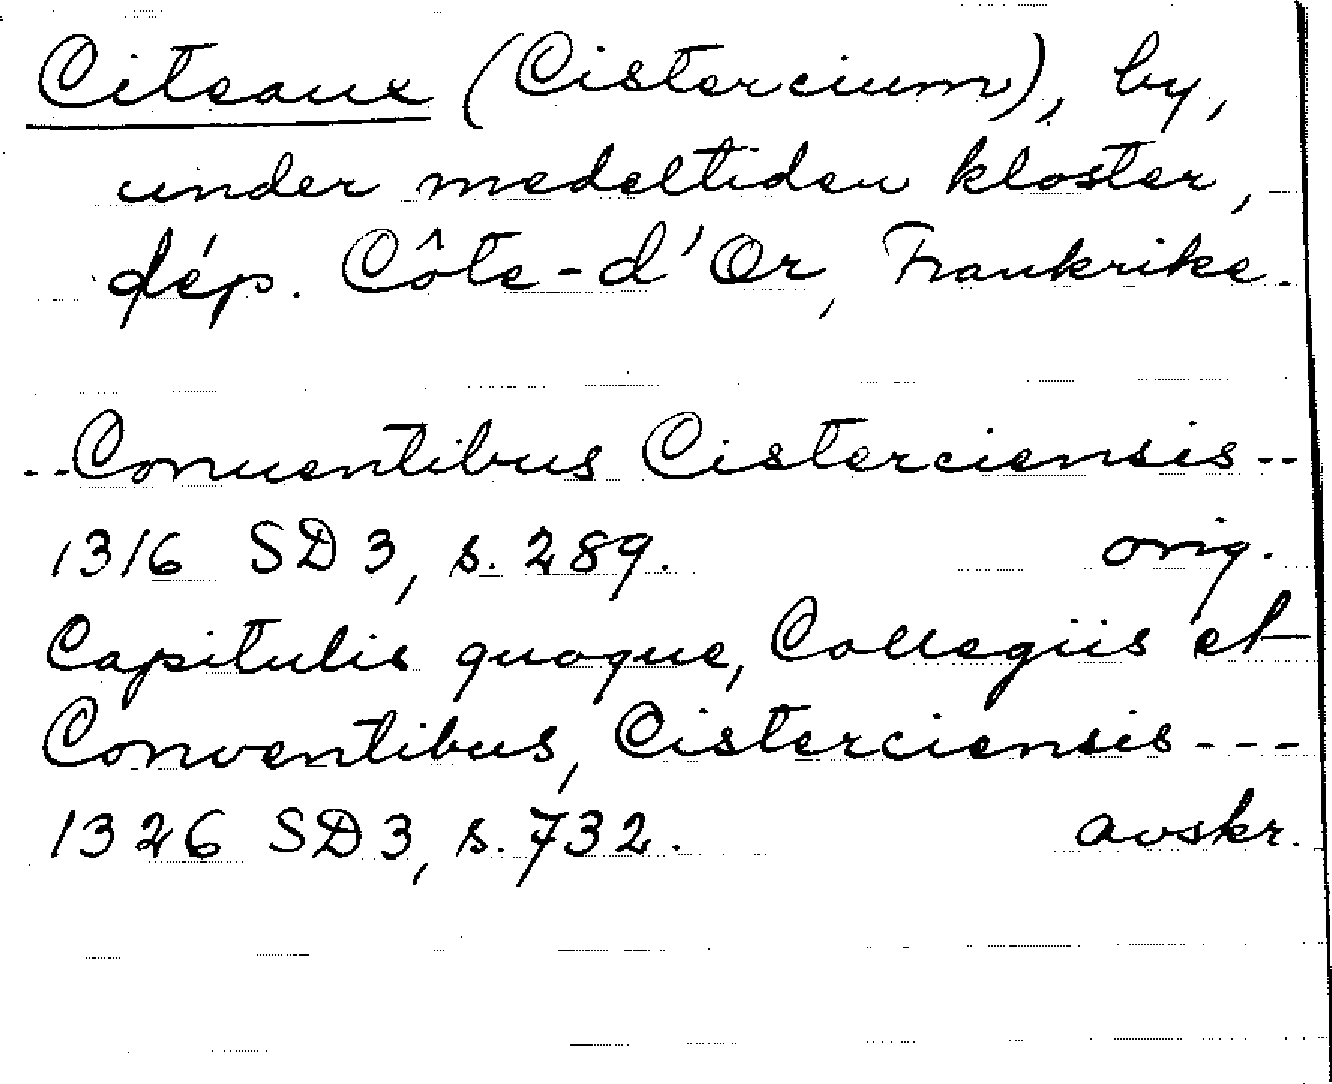 Citeaux (Cistercium), by,
under medeltiden kloster,
dép. Côte-d'Or, Frankrike.
--Conuentibus Cisterciensis--
1316 SD 3, s. 289. orig.
Capitulis quoque, Collegiis et
Conventibus, Cisterciensis---
1326 SD 3, s. 732. avskr.